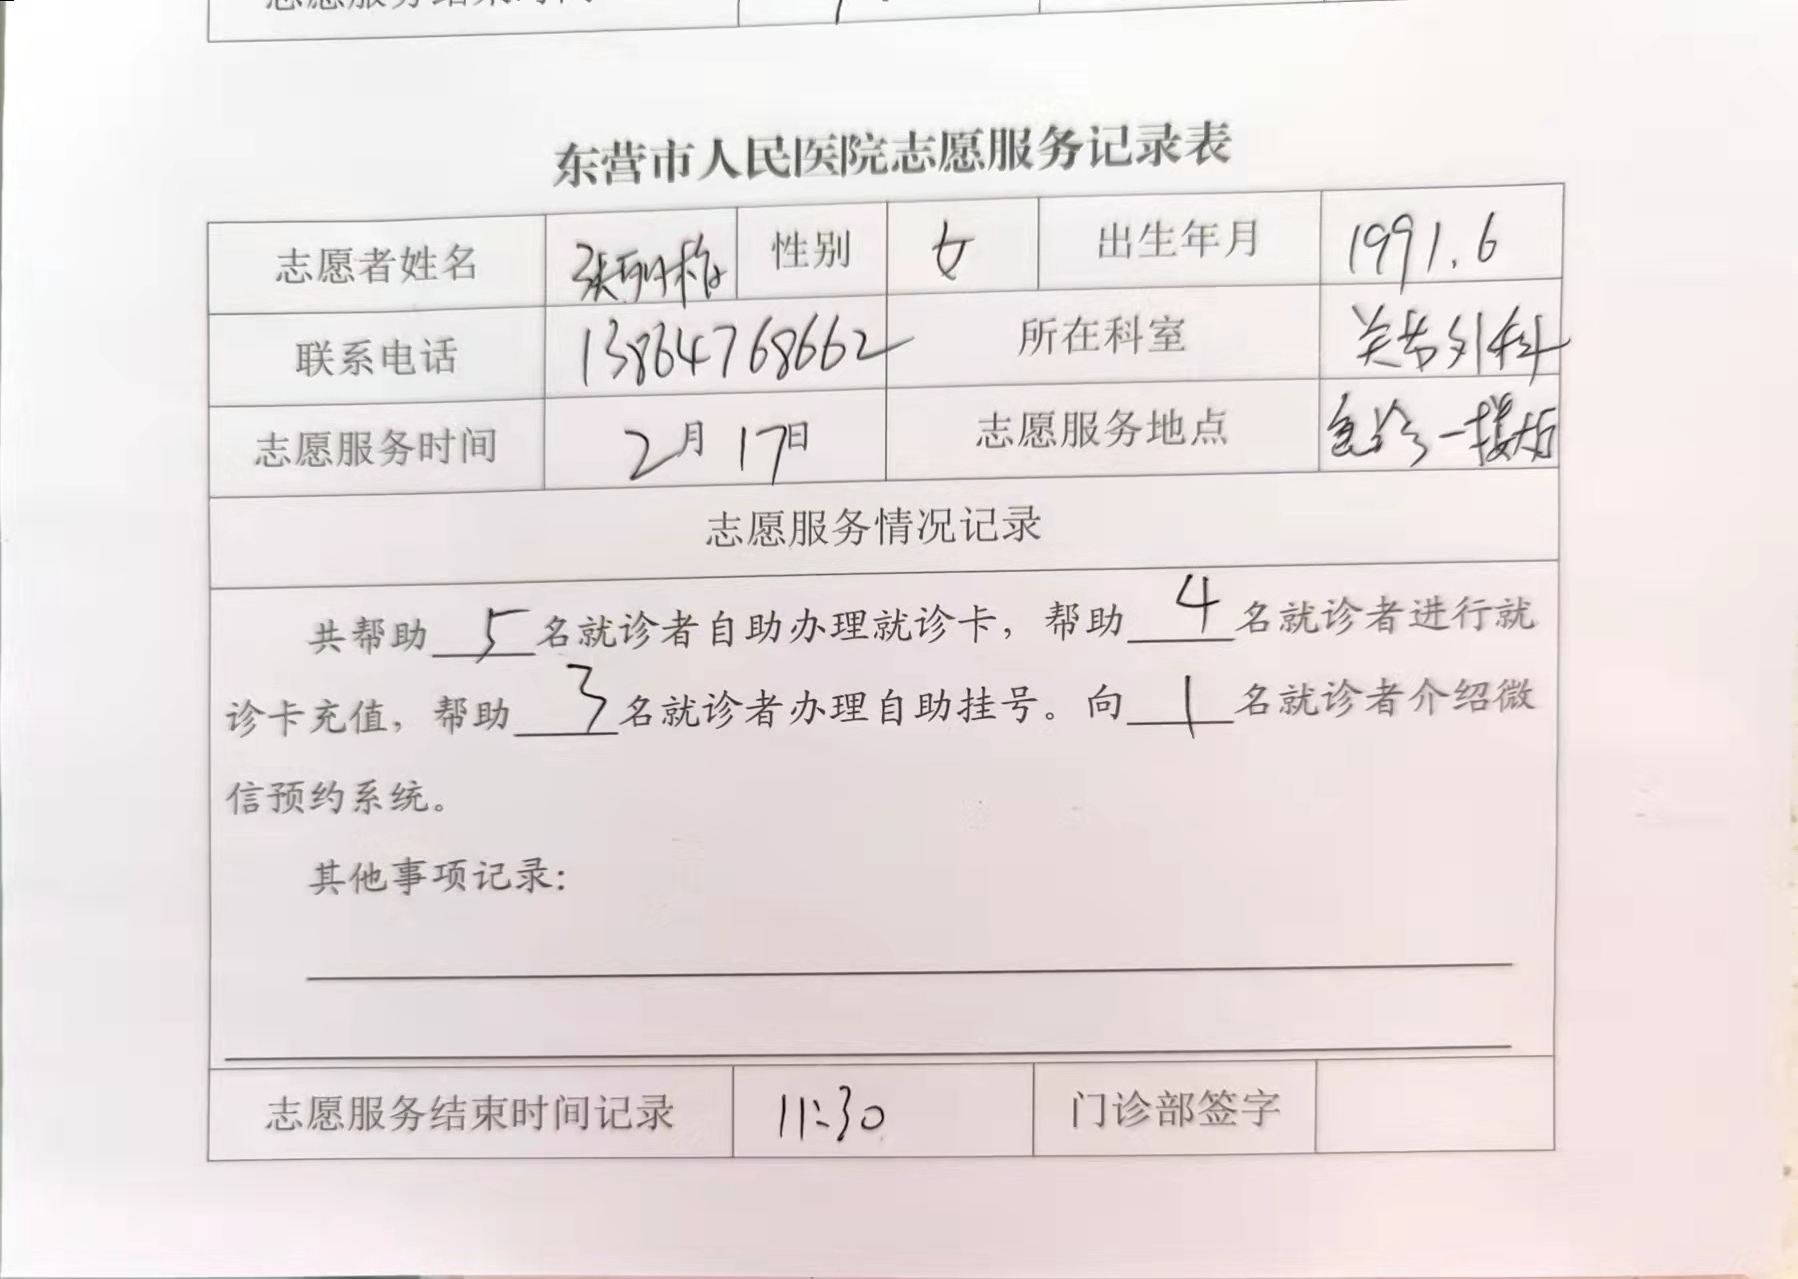 志愿服务结束时间
东营市人民医院志愿服务记录表
志愿者姓名 性别 女 出生年月 1991.6
联系电话 13864768662 所在科室 关节外科
志愿服务时间 2月17日 志愿服务地点 急诊一楼大厅
志愿服务情况记录
共帮助 5 名就诊者自助办理就诊卡，帮助 4 名就诊者进行就
诊卡充值，帮助 3 名就诊者办理自助挂号。向 1 名就诊者介绍微
信预约系统。
其他事项记录：
志愿服务结束时间记录 11:30 门诊部签字